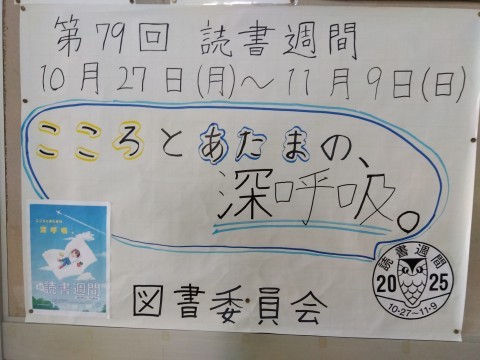 第79回 読書週間
10月27日(月)～11月9日(日)
こころとあたまの、
深呼吸。
深呼吸
読書週間
読書週間
20 25
10・27~11・9
図書委員会